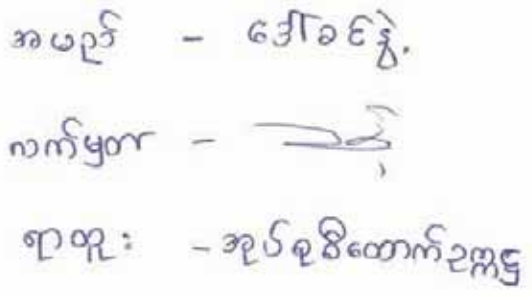 အမည် - ဒေါ်ခင်နွဲ့
လက်မှတ် -
ရာထူး - အုပ်စုစီထောက်ဥက္ကဋ္ဌ